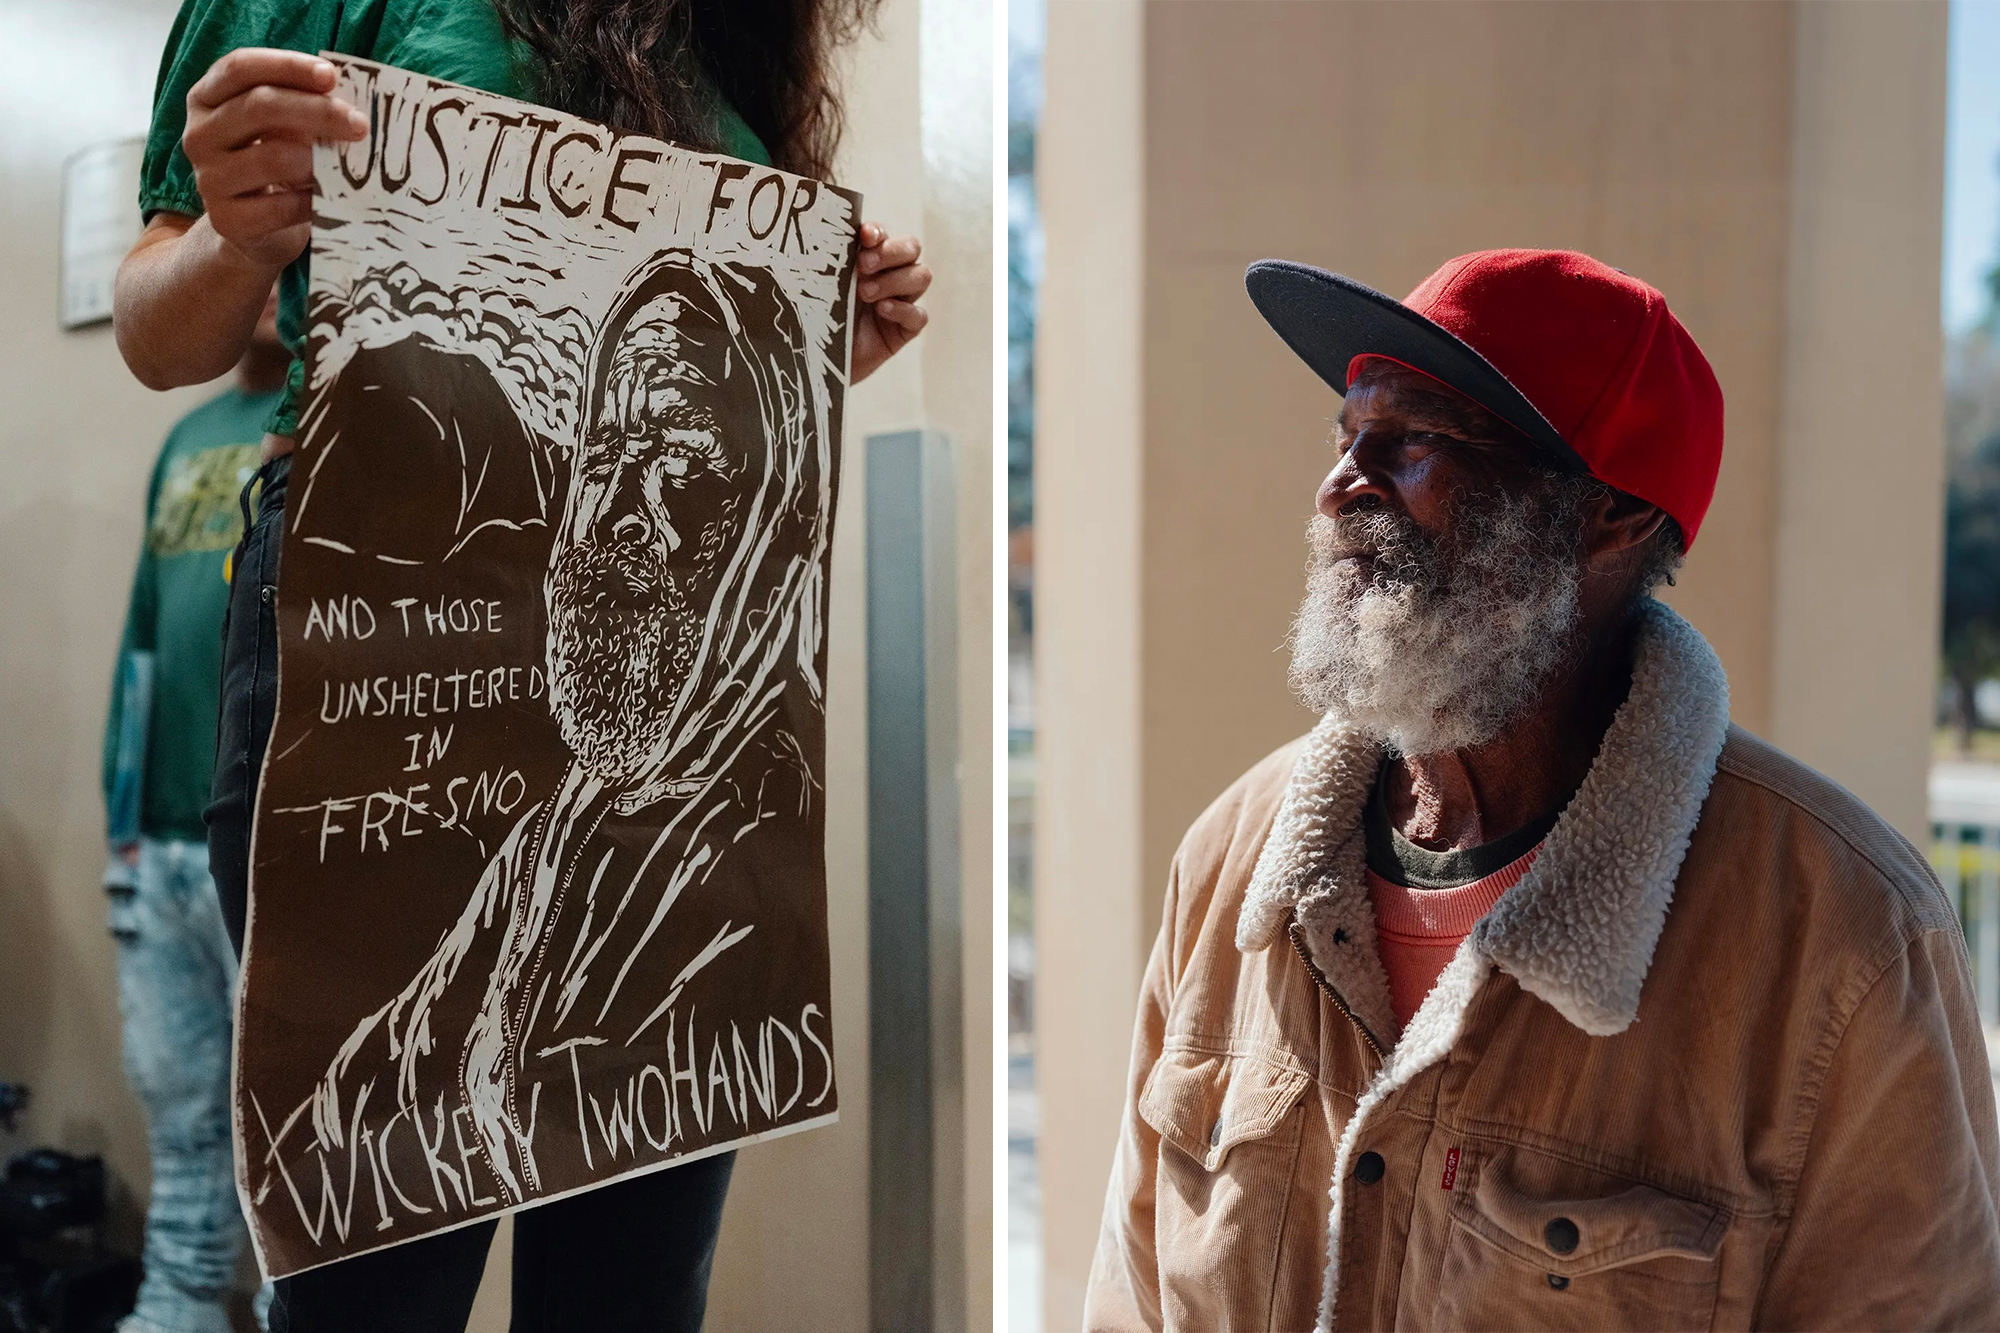 JUSTICE FOR
AND THOSE
UNSHELTERED
IN
FRESNO
WICKEY TWOHANDS
Levi's